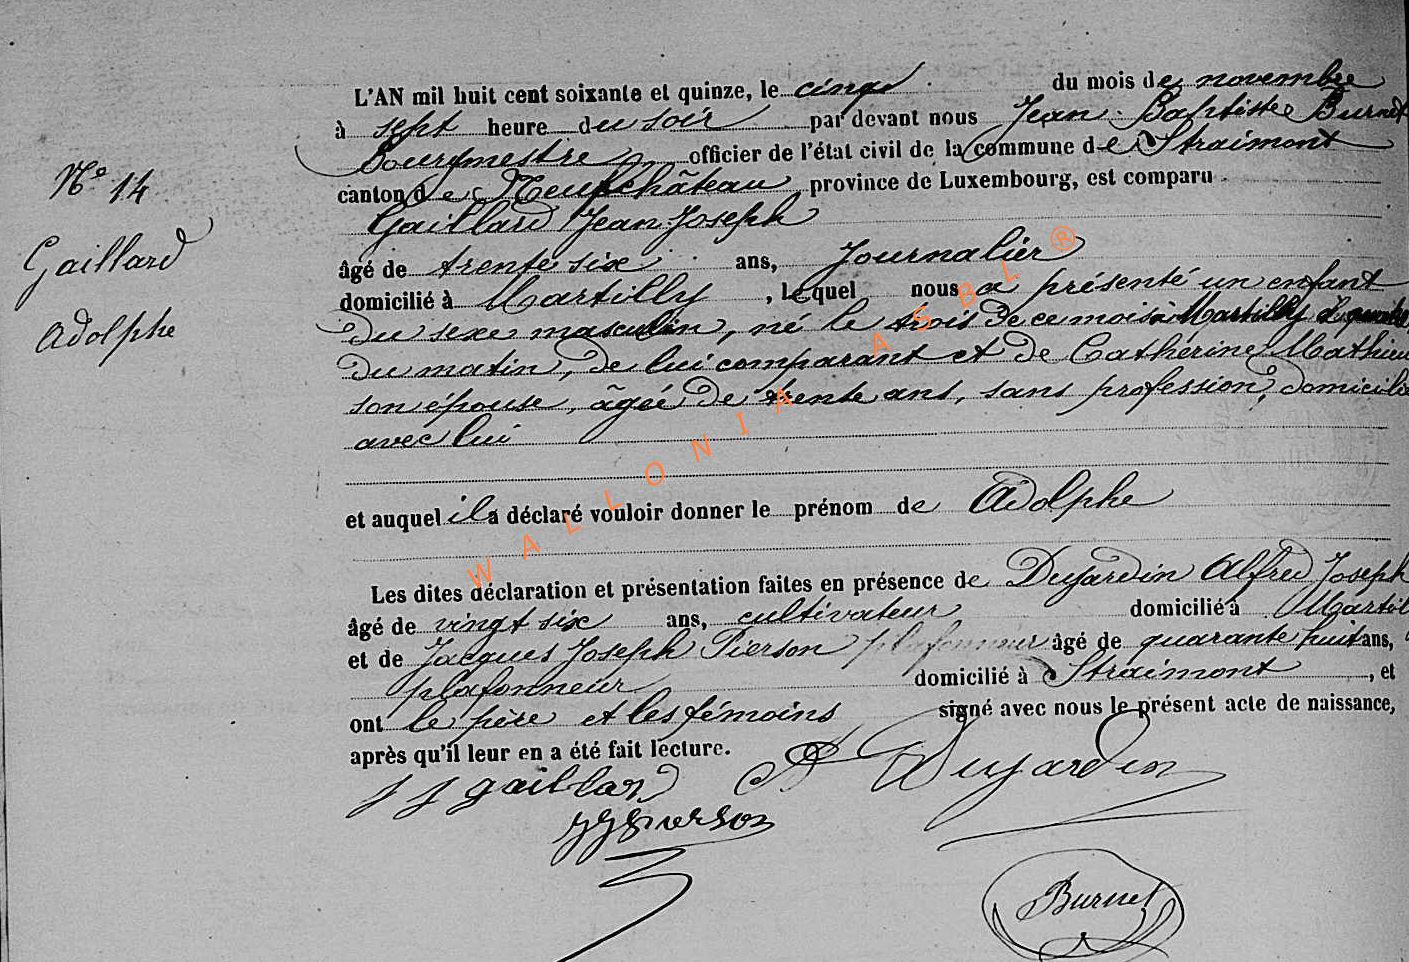 L'AN mil huit cent soixante et quinze, le cinq du mois de novembre
à sept heure du soir par devant nous Jean Baptiste Burnet
Bourgmestre officier de l'état civil de la commune de Straimont
N° 14
canton de Neufchâteau, province de Luxembourg, est comparu
Gaillard Jean Joseph
Gaillard
âgé de trente six ans, Journalier
domicilié à Martilly, lequel nous a présenté un enfant
Adolphe
du sexe masculin, né le trois de ce mois à Martilly à quatre
du matin, de lui comparant et de Cathérine Mathieu
son épouse, âgée de trente ans, sans profession, domicilié
avec lui
et auquel il a déclaré vouloir donner le prénom de Adolphe
Les dites déclaration et présentation faites en présence de Dujardin Alfred Joseph
âgé de vingt six ans, cultivateur domicilié à Martil
et de Jacques Joseph Pierson plafonneur âgé de quarante huit ans,
plafonneur domicilié à Straimont, et
ont le père et les témoins signé avec nous le présent acte de naissance,
après qu'il leur en a été fait lecture.
J J gaillard A Dujardin
JJ Pierson
Burnet
WALLONIA ASBL ®